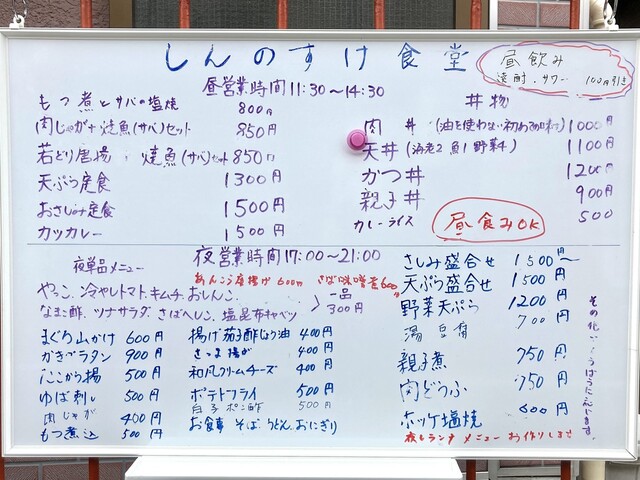 しんのすけ食堂
昼飲み
焼酎・サワー 100円引き
昼営業時間11:30〜14:30
もつ煮とサバの塩焼
800円
肉じゃが 焼魚(サバ)セット 850円
若どり唐揚 焼魚(サバ)セット 850円
天ぷら定食 1300円
おさしみ定食 1500円
カツカレー 1500円
丼物
肉丼 (油を使わない 1000円
天丼(海老2 魚1 野菜4) 1100円
かつ丼 1200円
親子丼 900円
カレーライス 500
昼食みOK
夜営業時間17:00〜21:00
夜単品メニュー
あんこう唐揚げ 600円 さば味噌煮600円
やっこ.冷やしトマト.キムチ.おしんこ.
なまこ酢.ツナサラダ.さばへしこ.塩昆布キャベツ
一品
300円
まぐろ山かけ 600円
かきグラタン 900円
ここから揚 500円
ゆば刺し 500円
肉じゃが 400円
もつ煮込 500円
揚げ茄子酢じょう油 400円
さつま揚げ 400円
和風クリームチーズ 400円
ポテトフライ 500円
白子ポン酢 500円
お食事 そば.うどん.おにぎり
さしみ盛合せ 1500円〜
天ぷら盛合せ 1500円
野菜天ぷら 1200円
湯豆腐 700円
親子煮 750円
肉どうふ 750円
ホッケ塩焼 600円
夜もランチメニューお作りします